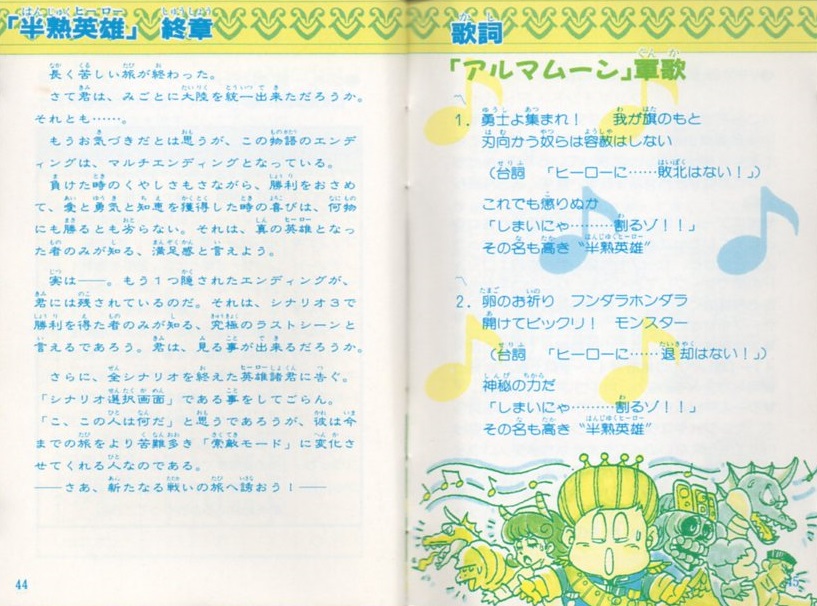 「半熟英雄」 終章
長く苦しい旅が終わった。
さて君は、みごとに大陸を統一出来ただろうか。
それとも……。
もうお気づきだとは思うが、この物語のエンデ
ィングは、マルチエンディングとなっている。
負けた時のくやしさもさながら、勝利をおさめ
て、愛と勇気と知恵を獲得した時の喜びは、何物
にも勝るとも劣らない。それは、真の英雄となっ
た者のみが知る、満足感と言えよう。
実は――。もう1つ隠されたエンディングが、
君には残されているのだ。それは、シナリオ3で
勝利を得た者のみが知る、究極のラストシーンと
言えるであろう。君は、見る事が出来るだろうか。
さらに、全シナリオを終えた英雄諸君に告ぐ。
「シナリオ選択画面」である事をしてごらん。
「こ、この人は何だ」と思うであろうが、彼は今
までの旅をより苦難多き「索敵モード」に変化さ
せてくれる人なのである。
――さあ、新たなる戦いの旅へ誘おう!――
44
歌詞
「アルマムーン」軍歌
1. 勇士よ集まれ! 我が旗のもと
刃向かう奴らは容赦はしない
(台詞 「ヒーローに……敗北はない!」)
これでも懲りぬか
「しまいにゃ………割るゾ!!」
その名も高き〝半熟英雄〟
2. 卵のお祈り フンダラホンダラ
開けてビックリ! モンスター
(台詞 「ヒーローに……退却はない!」)
神秘の力だ
「しまいにゃ………割るゾ!!」
その名も高き〝半熟英雄〟
45